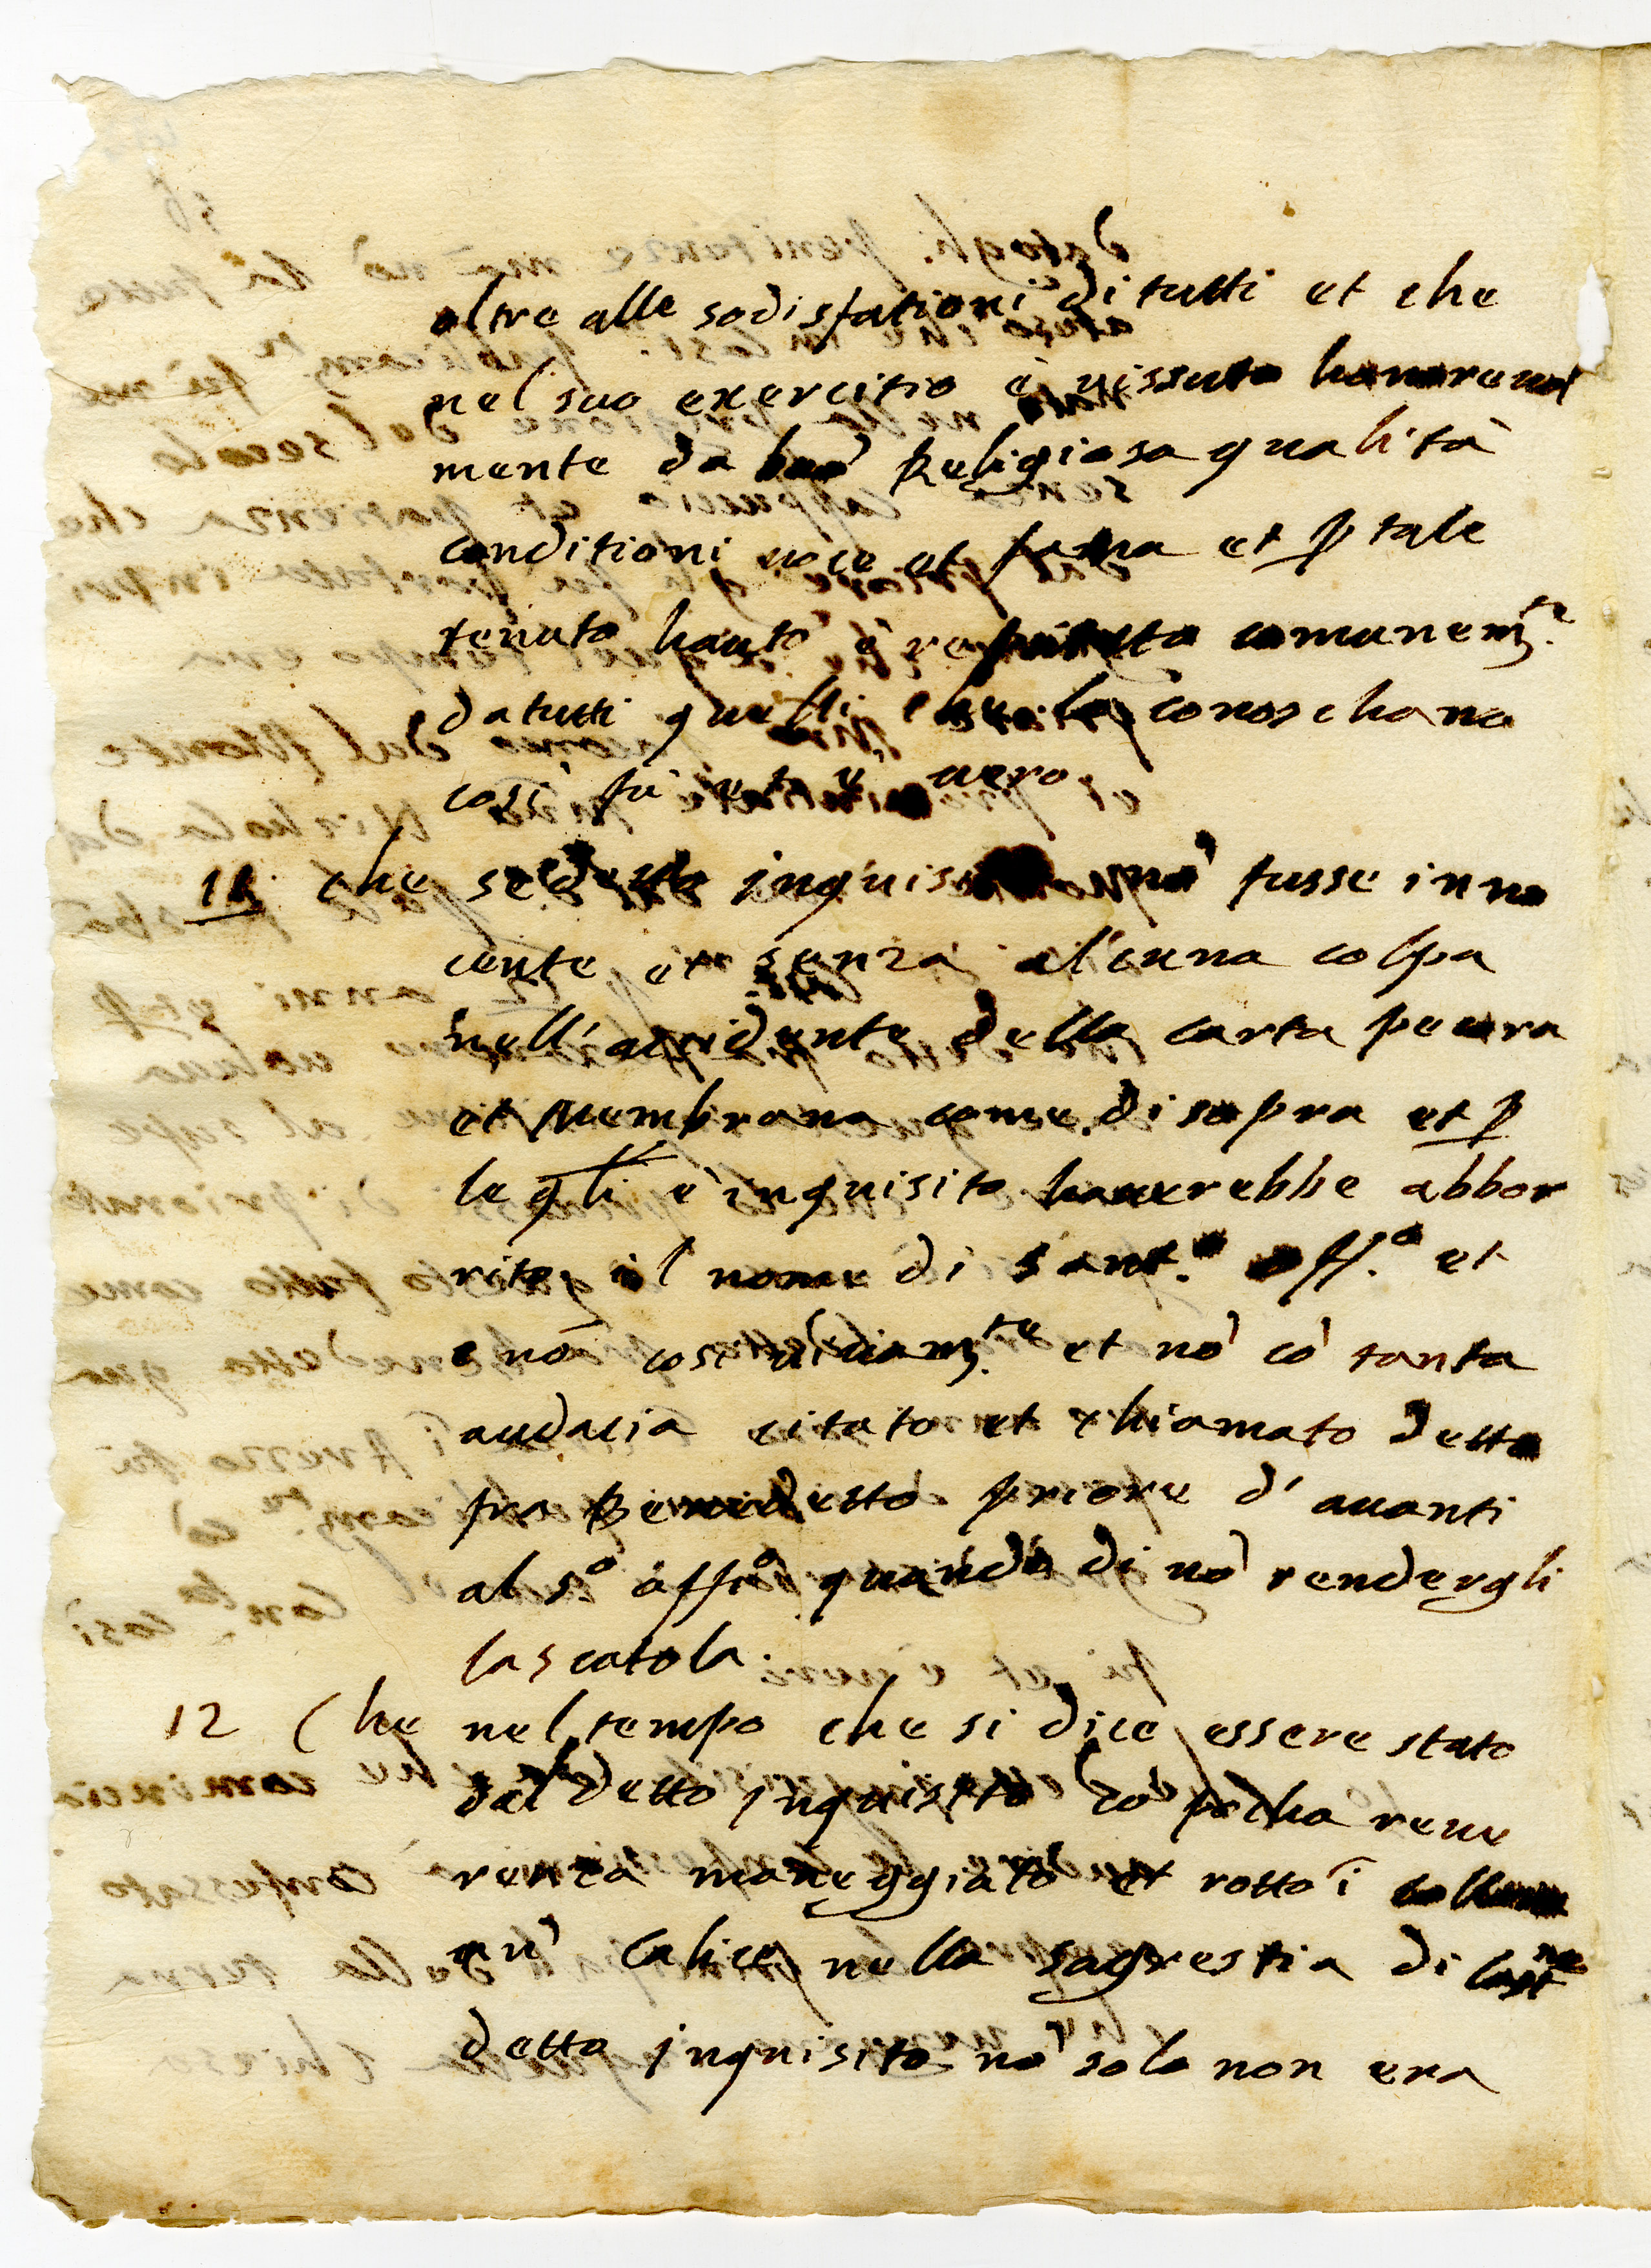 oltre alle sodisfationi di tutti et che
nel suo exercitio è uissuto honoreuol
mente da buõ Religioso qualità
conditioni uoce et fama et ꝑ tale
tenuto hauto è reputato comunem.te
da tutti quelli che lo conoschano
così fù et è uero
11 che se detto inquisito nõ fusse inno
cente et senza alcuna colpa
nell'accidente della carta pecora
et membrana come di sopra et ꝑ
le qli è inquisito hauerebbe abbor
rito il nome di sant.o off.o et
e nõ così et nõ cõ tanta
audacia citato et chiamato detto
fra Benedetto priore d'auanti
al s.o offo quando di nõ rendergli
la scatola.
12 Che nel tempo che si dice essere stato
dal detto inquisito cõ pocha reue
renza maneggiato et rotto ĩ
un' calice nella sagrestia di
detto inquisito nõ solo non era